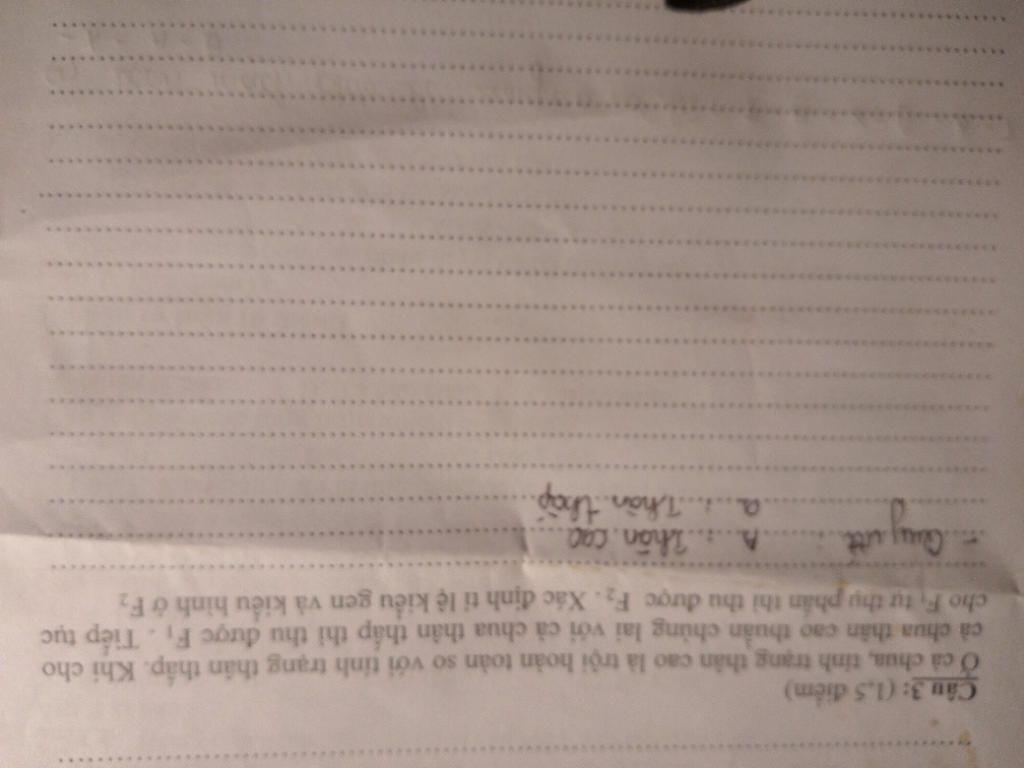 Câu 3: (1,5 điểm)
Ở cà chua, tính trạng thân cao là trội hoàn toàn so với tính trạng thân thấp. Khi cho
cà chua thân cao thuần chủng lai với cà chua thân thấp thì thu được F1 . Tiếp tục
cho F1 tự thụ phấn thì thu được F2 . Xác định tỉ lệ kiểu gen và kiểu hình ở F2
- Quy ước : A : Thân cao
a : Thân thấp